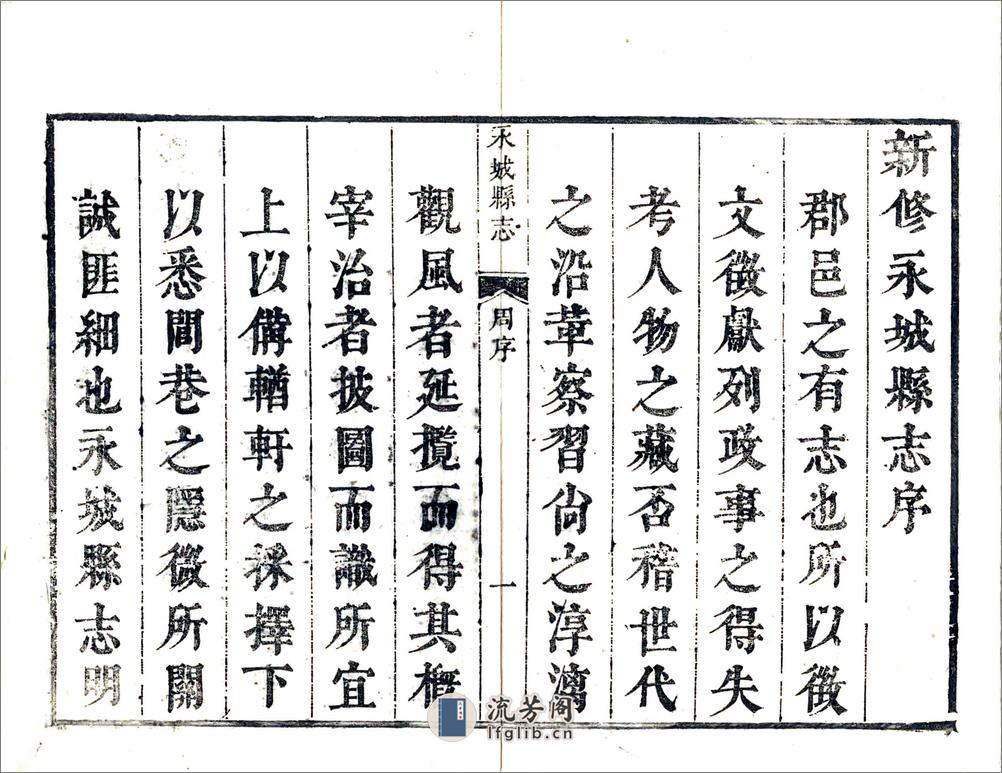 新修永城縣志序
郡邑之有志也所以徵
文徵獻列政事之得失
考人物之藏否稽世代
之沿革察習尙之淳漓
永城縣志 周序 一
觀風者延攬而得其概
宰治者披圖而識所宜
上以備輶軒之採擇下
以悉閭巷之隱微所關
誠匪細也永城縣志明
流芳阁
lfglib.cn